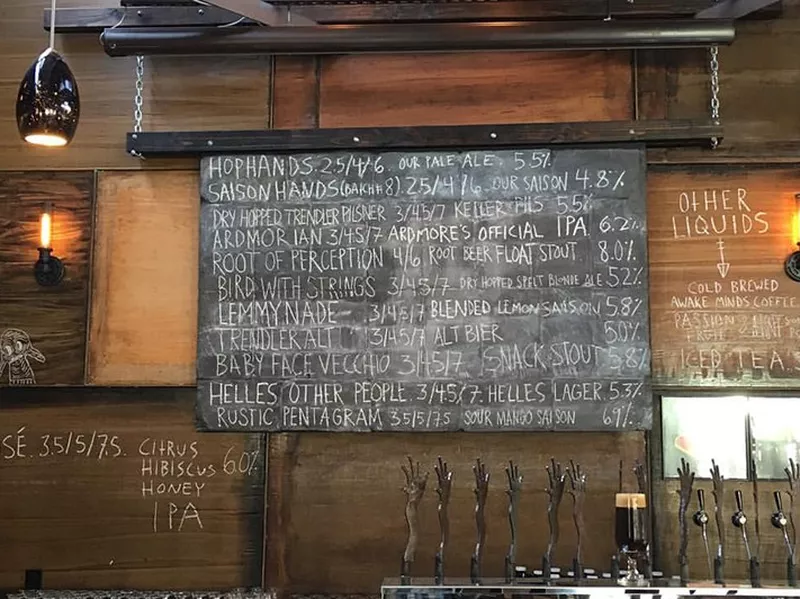 HOPHANDS. 2.5/4/6. OUR PALE ALE. 5.5%
SAISON HANDS (BATCH #8). 2.5/4/6. OUR SAISON 4.8%
DRY HOPPED TRENDLER PILSNER 3/4.5/7 KELLER PILS 5.5%
ARDMORIAN 3/4.5/7 ARDMORE'S OFFICIAL IPA. 6.2%
ROOT OF PERCEPTION 4/6 ROOT BEER FLOAT STOUT 8.0%
BIRD WITH STRINGS 3/4.5/7. DRY HOPPED SPELT BLONDE ALE 5.2%
LEMMYNADE 3/4.5/7 BLENDED LEMON SAISON 5.8%
TRENDLER ALT 3/4.5/7 ALT BIER 5.0%
BABY FACE VECCHIO 3/4.5/7. SNACK STOUT 5.8%
HELLES OTHER PEOPLE. 3/4.5/7. HELLES LAGER. 5.3%
RUSTIC PENTAGRAM 3.5/5/7.5 SOUR MANGO SAISON 6.9%
SÉ. 3.5/5/7.5. CITRUS
HIBISCUS 6.0%
HONEY
IPA
OTHER
LIQUIDS
COLD BREWED
AWAKE MINDS COFFEE
PASSION
ICED TEAS